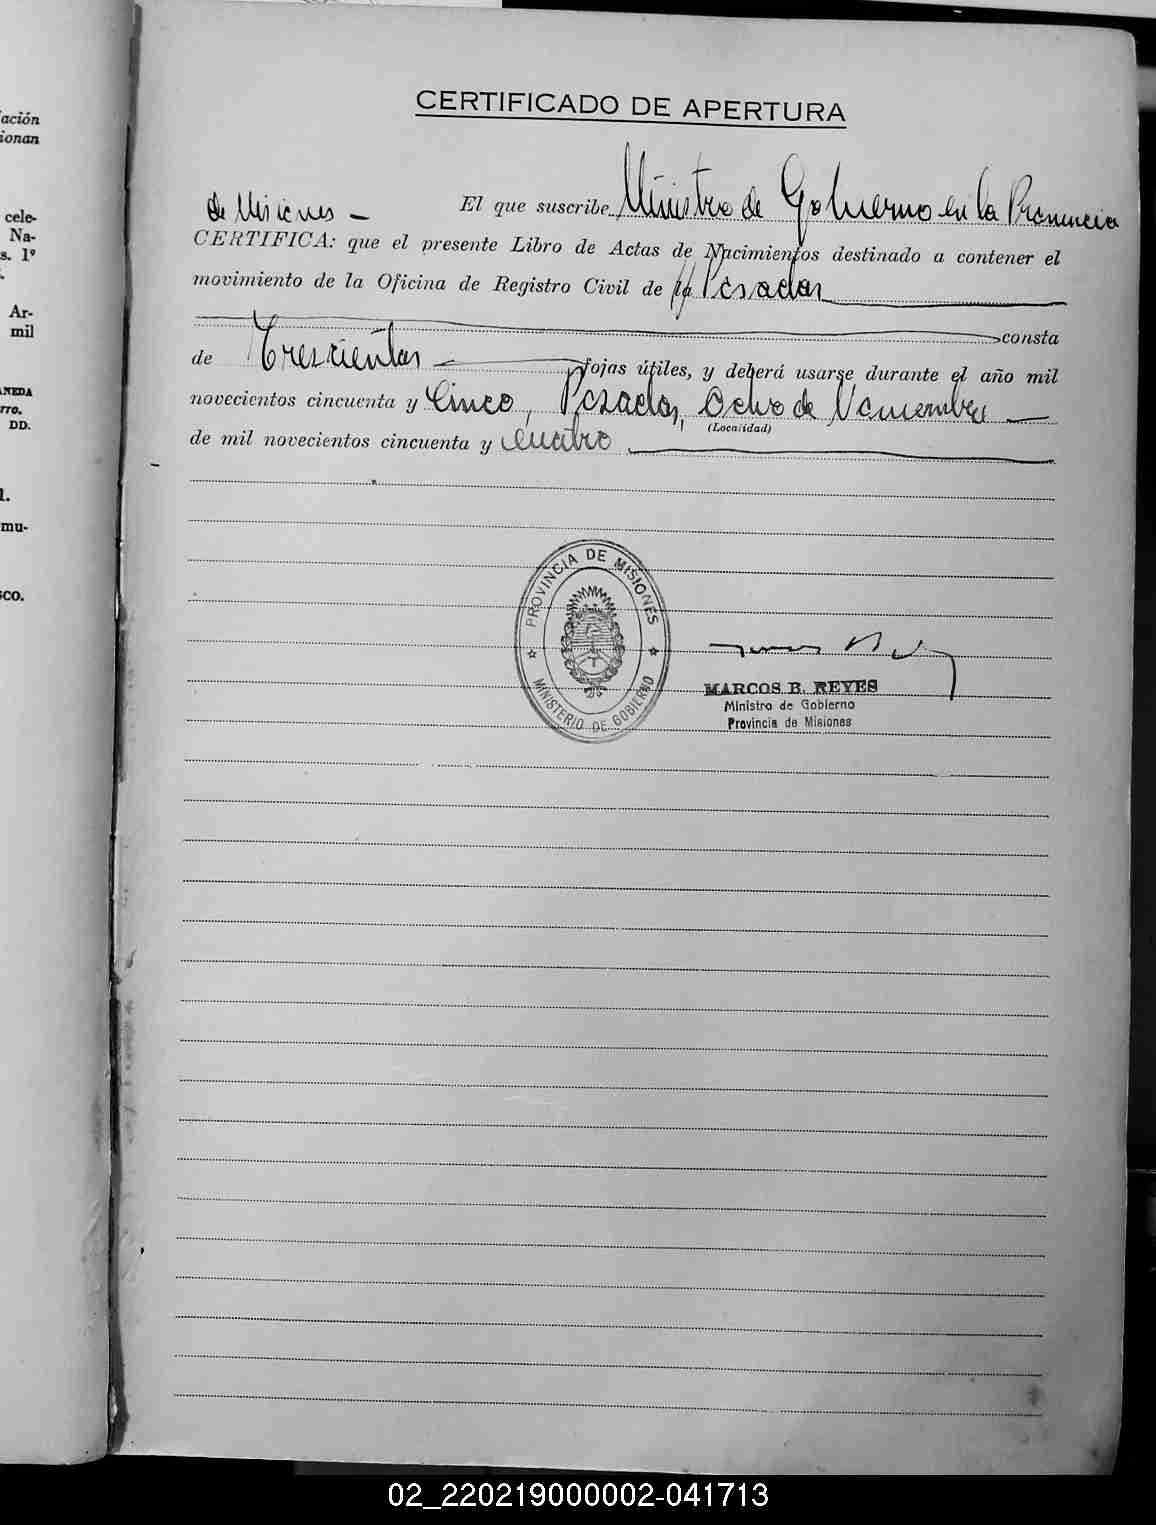 ación
ionan
cele-
Na-
s. 1º
Ar-
mil
ANEDA
rro.
DD.
l.
mu-
sco.
CERTIFICADO DE APERTURA
El que suscribe Ministro de Gobierno en la Provincia
de Misiones —
CERTIFICA: que el presente Libro de Actas de Nacimientos destinado a contener el
movimiento de la Oficina de Registro Civil de Posadas
consta
de Trescientas fojas útiles, y deberá usarse durante el año mil
novecientos cincuenta y Cinco, Posadas, Ocho de Noviembre
(Localidad)
de mil novecientos cincuenta y cuatro
PROVINCIA DE MISIONES
MINISTERIO DE GOBIERNO
MARCOS B. REYES
Ministro de Gobierno
Provincia de Misiones
02_220219000002-041713